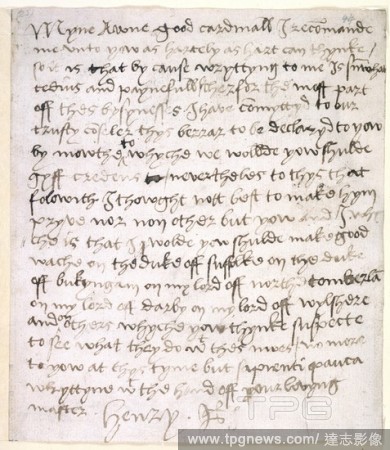 Myne Awne good cardinall I recomande
me unto yow as hartely as hart can thynke
so it is that by cause wryttyng to me is sumwhat
tedius and paynefull therfor the most part
off thes bysynesses I have comyttyd to our
trusty counseler thys berrar to be declaryd to yow
by mowthe to whyche we wollde yow shulde
gyff credens neverthelesse to thys that
folowith I thowght nott best to make hym
pryve nor non other but yow and I whi
che is that I wolde yow shulde make good
wache on the duke off suffolke on the duke
off bukyngam on my lord off northe
on my lord off darby on my lord off wylshere
and on others whyche yow thynke suspecte
to see what they do wt thes nwes no more
to yow at thys tyme but sapienti pauca
wryttyne wt the hand off your lovyng
master Henry R
TPG
www.tpgnews.com/達志影像